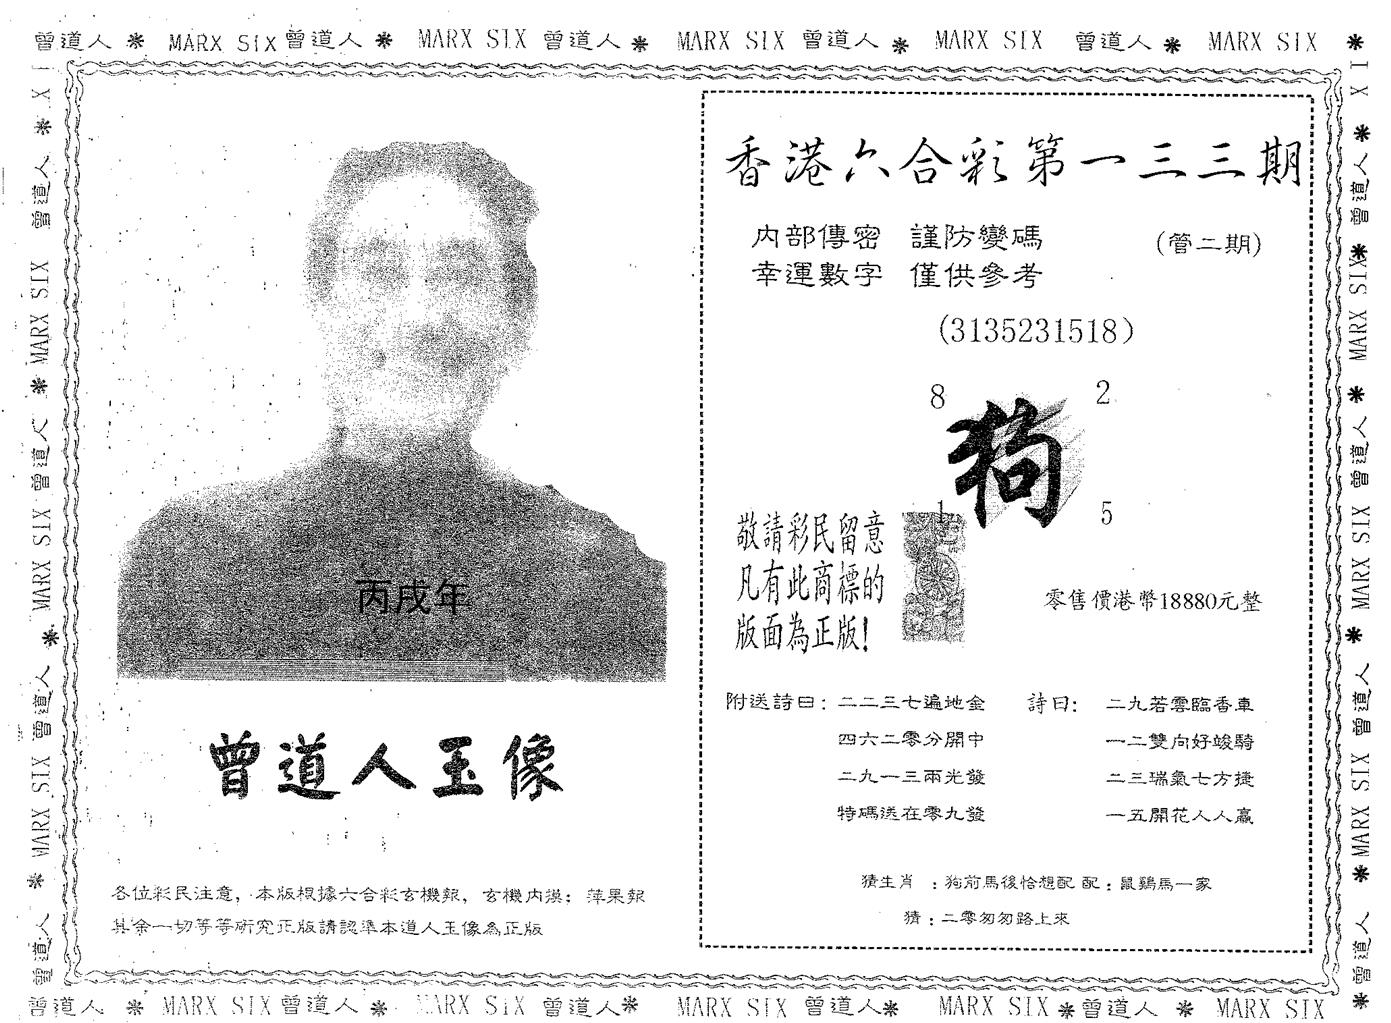 曾道人 * MARX SIX 曾道人 * MARX SIX 曾道人 * MARX SIX 曾道人 * MARX SIX 曾道人 * MARX SIX *
丙戌年
曾道人玉像
各位彩民注意，本版根據六合彩玄機報，玄機內漠；萍果報
其余一切等等研究正版請認準本道人玉像為正版
香港六合彩第一三三期
內部傳密 謹防變碼 (管二期)
幸運數字 僅供參考
(3135231518)
8 2
狗
1 5
敬請彩民留意
凡有此商標的
版面為正版!
零售價港幣18880元整
附送詩曰：二二三七遍地金
四六二零分開中
二九一三兩光發
特碼送在零九發
詩曰：二九若雲臨香車
一二雙向好竣騎
二三瑞氣七方捷
一五開花人人贏
猜生肖：狗前馬後恰想配 配：鼠鷄馬一家
猜：二零匆匆路上來
X I * 曾道人 MARX SIX * MARX SIX 曾道人 * MARX SIX 曾道人 * 曾道人
X I * 曾道人 * MARX SIX * 曾道人 MARX SIX * 曾道人 MARX SIX * 曾道人 *
曾道人 * MARX SIX 曾道人 * MARX SIX 曾道人 * MARX SIX 曾道人 * MARX SIX * 曾道人 * MARX SIX